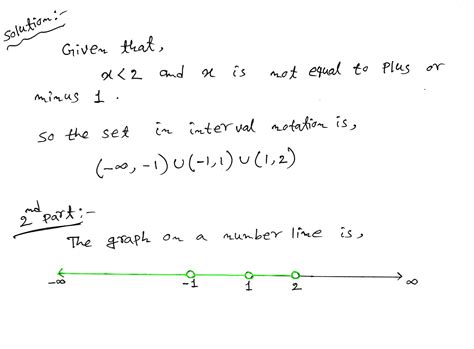 Solution:-
Given that,
x<2 and x is not equal to plus or
minus 1.
So the set in interval notation is,
(-∞, -1) ∪ (-1, 1) ∪ (1, 2)
2nd part:-
The graph on a number line is,
-∞ -1 1 2 ∞